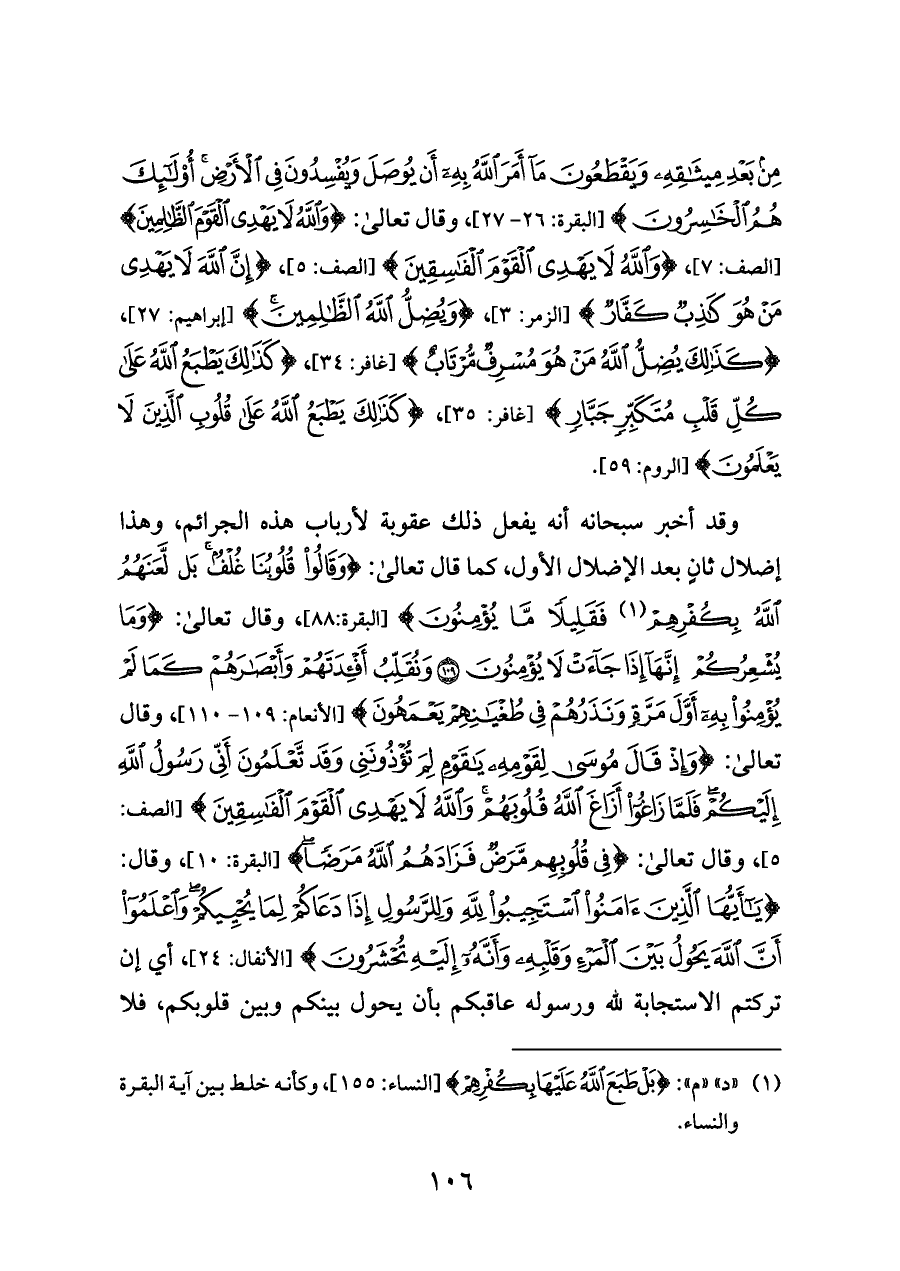 مِنۢ بَعْدِ مِيثَٰقِهِۦ وَيَقْطَعُونَ مَآ أَمَرَ ٱللَّهُ بِهِۦٓ أَن يُوصَلَ وَيُفْسِدُونَ فِى ٱلْأَرْضِۚ أُو۟لَٰٓئِكَ
هُمُ ٱلْخَٰسِرُونَ ﴾ [البقرة: ٢٦- ٢٧]، وقال تعالىٰ: ﴿وَٱللَّهُ لَا يَهْدِى ٱلْقَوْمَ ٱلظَّٰلِمِينَ﴾
[الصف: ٧]، ﴿وَٱللَّهُ لَا يَهْدِى ٱلْقَوْمَ ٱلْفَٰسِقِينَ ﴾ [الصف: ٥]، ﴿إِنَّ ٱللَّهَ لَا يَهْدِى
مَنْ هُوَ كَٰذِبٌ كَفَّارٌ ﴾ [الزمر: ٣]، ﴿وَيُضِلُّ ٱللَّهُ ٱلظَّٰلِمِينَۚ ﴾ [إبراهيم: ٢٧]،
﴿كَذَٰلِكَ يُضِلُّ ٱللَّهُ مَنْ هُوَ مُسْرِفٌ مُّرْتَابٌ ﴾ [غافر: ٣٤]، ﴿كَذَٰلِكَ يَطْبَعُ ٱللَّهُ عَلَىٰ
كُلِّ قَلْبِ مُتَكَبِّرٍ جَبَّارٍ ﴾ [غافر: ٣٥]، ﴿كَذَٰلِكَ يَطْبَعُ ٱللَّهُ عَلَىٰ قُلُوبِ ٱلَّذِينَ لَا
يَعْلَمُونَ﴾ [الروم: ٥٩].
وقد أخبر سبحانه أنه يفعل ذلك عقوبة لأرباب هذه الجرائم، وهذا
إضلال ثانٍ بعد الإضلال الأول، كما قال تعالىٰ: ﴿وَقَالُوا۟ قُلُوبُنَا غُلْفٌۢۚ بَل لَّعَنَهُمُ
ٱللَّهُ بِكُفْرِهِمْ(١) فَقَلِيلًا مَّا يُؤْمِنُونَ ﴾ [البقرة:٨٨]، وقال تعالىٰ: ﴿وَمَا
يُشْعِرُكُمْ إِنَّهَآ إِذَا جَآءَتْ لَا يُؤْمِنُونَ ١٠٩ وَنُقَلِّبُ أَفْـِٔدَتَهُمْ وَأَبْصَٰرَهُمْ كَمَا لَمْ
يُؤْمِنُوا۟ بِهِۦٓ أَوَّلَ مَرَّةٍ وَنَذَرُهُمْ فِى طُغْيَٰنِهِمْ يَعْمَهُونَ ﴾ [الأنعام: ١٠٩- ١١٠]، وقال
تعالىٰ: ﴿وَإِذْ قَالَ مُوسَىٰ لِقَوْمِهِۦ يَٰقَوْمِ لِمَ تُؤْذُونَنِى وَقَد تَّعْلَمُونَ أَنِّى رَسُولُ ٱللَّهِ
إِلَيْكُمْۖ فَلَمَّا زَاغُوٓا۟ أَزَاغَ ٱللَّهُ قُلُوبَهُمْۚ وَٱللَّهُ لَا يَهْدِى ٱلْقَوْمَ ٱلْفَٰسِقِينَ ﴾ [الصف:
٥]، وقال تعالىٰ: ﴿فِى قُلُوبِهِم مَّرَضٌ فَزَادَهُمُ ٱللَّهُ مَرَضًاۖ﴾ [البقرة: ١٠]، وقال:
﴿يَٰٓأَيُّهَا ٱلَّذِينَ ءَامَنُوا۟ ٱسْتَجِيبُوا۟ لِلَّهِ وَلِلرَّسُولِ إِذَا دَعَاكُمْ لِمَا يُحْيِيكُمْۖ وَٱعْلَمُوٓا۟
أَنَّ ٱللَّهَ يَحُولُ بَيْنَ ٱلْمَرْءِ وَقَلْبِهِۦ وَأَنَّهُۥٓ إِلَيْهِ تُحْشَرُونَ ﴾ [الأنفال: ٢٤]، أي إن
تركتم الاستجابة لله ورسوله عاقبكم بأن يحول بينكم وبين قلوبكم، فلا
(١) «د» «م»: ﴿بَلْ طَبَعَ ٱللَّهُ عَلَيْهَا بِكُفْرِهِمْ﴾ [النساء: ١٥٥]، وكأنه خلط بين آية البقرة
والنساء.
١٠٦